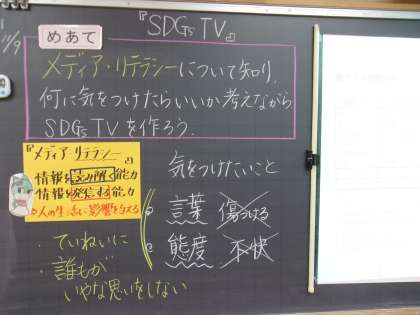 11/9
『SDGs TV』
めあて
メディア・リテラシーについて知り、
何に気をつけたらいいか考えながら
SDGs TVを作ろう。
『メディア リテラシー』
情報を
能力
情報を発信する能力
人の生活に影響を与える
気をつけたいこと
言葉 傷つける
態度 不快
・ていねいに
・誰もが
いやな思いをしない